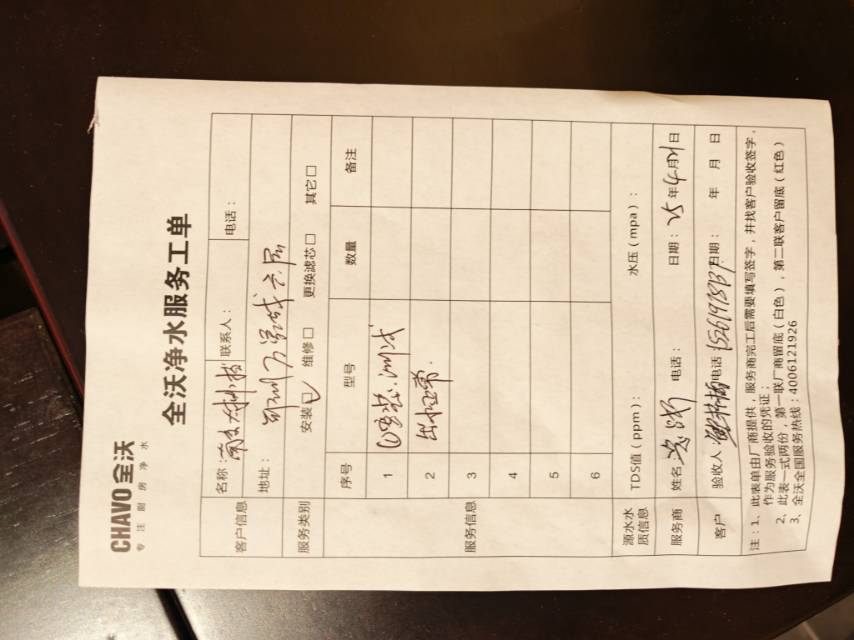 CHAVO全沃
专注厨房净水
全沃净水服务工单
客户信息 名称: 联系人: 电话:
地址: 郑州万象城
服务类别 安装☑ 维修□ 更换滤芯□ 其它□
服务信息 序号 型号 数量 备注
1 安装.测试
2 出水正常.
3
4
5
6
源水水质信息 TDS值(ppm): 水压(mpa):
服务商 姓名: 电话: 日期: 25年4月21日
客户 验收人: 电话 日期: 年 月 日
注:1、此表单由厂商提供,服务商完工后需要填写签字,并找客户验收签字,
作为服务验收的凭证;
2、此表一式两份,第一联厂商留底(白色),第二联客户留底(红色)
3、全沃全国服务热线:4006121926